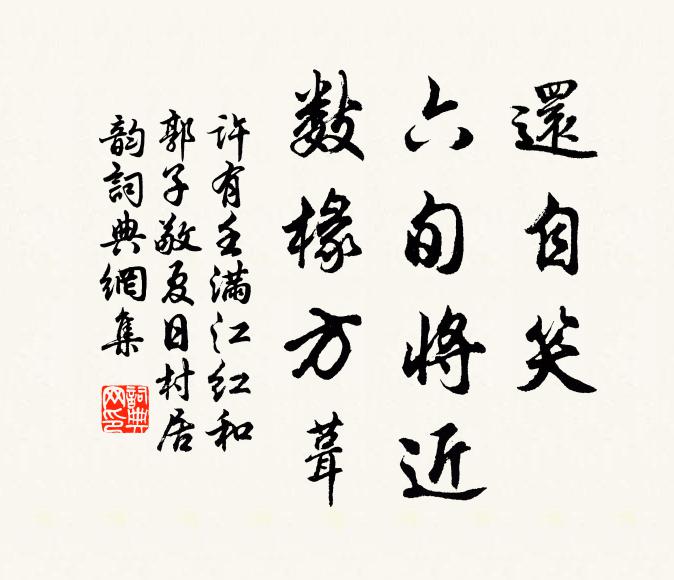 還自笑
六旬將近
數椽方葺
許有壬滿江紅和
郭子敬夏日村居
韵詞典網集
詞典
网印